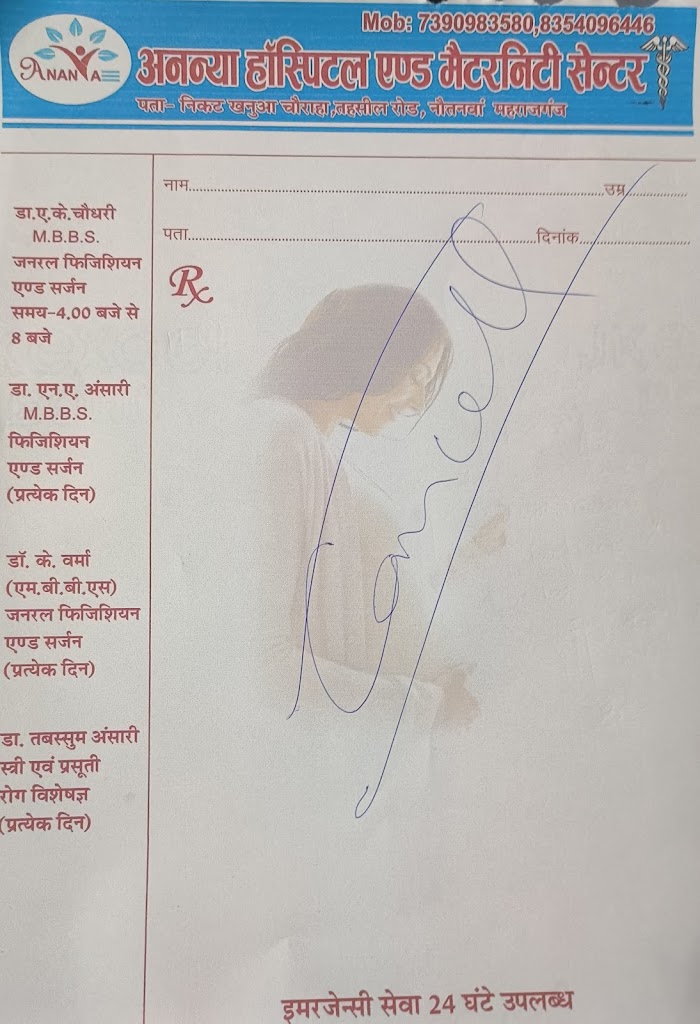 Mob: 7390983580,8354096446
ANANYA
अनन्या हॉस्पिटल एण्ड मैटरनिटी सेन्टर
पता- निकट खनुआ चौराहा,तहसील रोड, नौतनवां महराजगंज
नाम.......................................................................उम्र.................
पता.......................................................................दिनांक.....................
Rx
डा.ए.के.चौधरी
M.B.B.S.
जनरल फिजिशियन
एण्ड सर्जन
समय-4.00 बजे से
8 बजे
डा. एन.ए. अंसारी
M.B.B.S.
फिजिशियन
एण्ड सर्जन
(प्रत्येक दिन)
डॉ. के. वर्मा
(एम.बी.बी.एस)
जनरल फिजिशियन
एण्ड सर्जन
(प्रत्येक दिन)
डा. तबस्सुम अंसारी
स्त्री एवं प्रसूती
रोग विशेषज्ञ
(प्रत्येक दिन)
Cancel
इमरजेन्सी सेवा 24 घंटे उपलब्ध